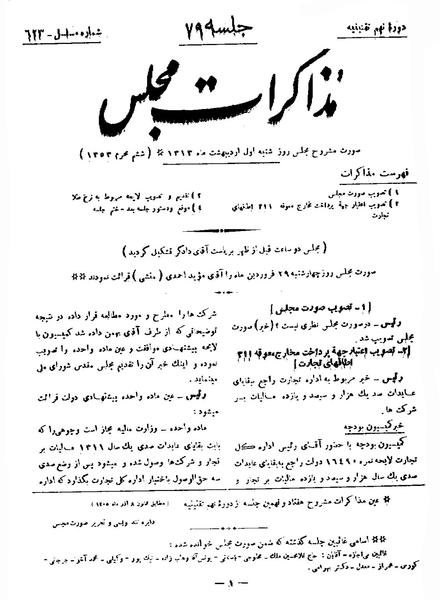 دورهٔ نهم تقنینیه
جلسه ۷۹
شماره مسلسل - ۶۲۳
مذاکرات مجلس
صورت مشروح مجلس روز شنبه اول اردیبهشت ماه ۱۳۱۳ ✻ ( ششم محرم ۱۳۵۳ )
فهرست مذاکرات
۱ ) تصویب صورت مجلس
۲ ) تصویب اعتبار جهة پرداخت مخارج معوقه ۳۱۱ اطاقهای
تجارت
۳ ) تقدیم و تصویب لایحه مربوط به نرخ طلا
۴ ) موقع و دستور جلسه بعد - ختم جلسه
( مجلس دو ساعت قبل از ظهر بریاست آقای دادگر تشکیل گردید )
صورت مجلس روز چهارشنبه ۲۹ فروردین ماه را آقای مؤید احمدی ( منشی ) قرائت نمودند ✻✻
[ ۱ - تصویب صورت مجلس ]
رئیس - در صورت مجلس نظری نیست ؟ ( خیر ) صورت
مجلس تصویب شد .
[ ۲ - تصویب اعتبار جهة پرداخت مخارج معوقه ۳۱۱
اطاقهای تجارت ]
رئیس - خبر مربوط به اداره تجارت راجع ببقایای
عایدات صد یک سال هزار و سیصد و یازده مالیات بر
شرکت ها .
خبر کمیسیون بودجه
کمیسیون بودجه با حضور آقای رئیس اداره کل
تجارت لایحه نمره ۱۶۴۹۰ دولت راجع به بقایای عایدات
صدی یک سال هزار و سیصد و یازده مالیات بر تجار و
شرکت ها را مطرح و مورد مطالعه قرار داده در نتیجه
توضیحاتی که از طرف آقای بهمن داده شد کمیسیون با
لایحه پیشنهادی موافقت و عین ماده واحده را تصویب
نموده و اینک خبر آن را تقدیم مجلس مقدس شورای ملی
مینماید .
رئیس - عین ماده واحده پیشنهادی دولت قرائت
میشود :
ماده واحده - وزارت مالیه مجاز است وجوهی را که
بابت بقایای عایدات صدی یک سال ۱۳۱۱ مالیات بر
تجار و شرکت ها وصول شده و میشود پس از وضع صدی
سه حق الوصول باختیار اداره کل تجارت بگذارد که اداره
✻ عین مذاکرات مشروح هفتاد و نهمین جلسه از دورهٔ نهم تقنینیه
( مطابق قانون ۸ آذر ماه ۱۳۰۵ )
دایره تند نویسی و تحریر صورت مجلس
✻✻ اسامی غائبین جلسه گذشته که ضمن صورت مجلس خوانده شده :
- ۱ -